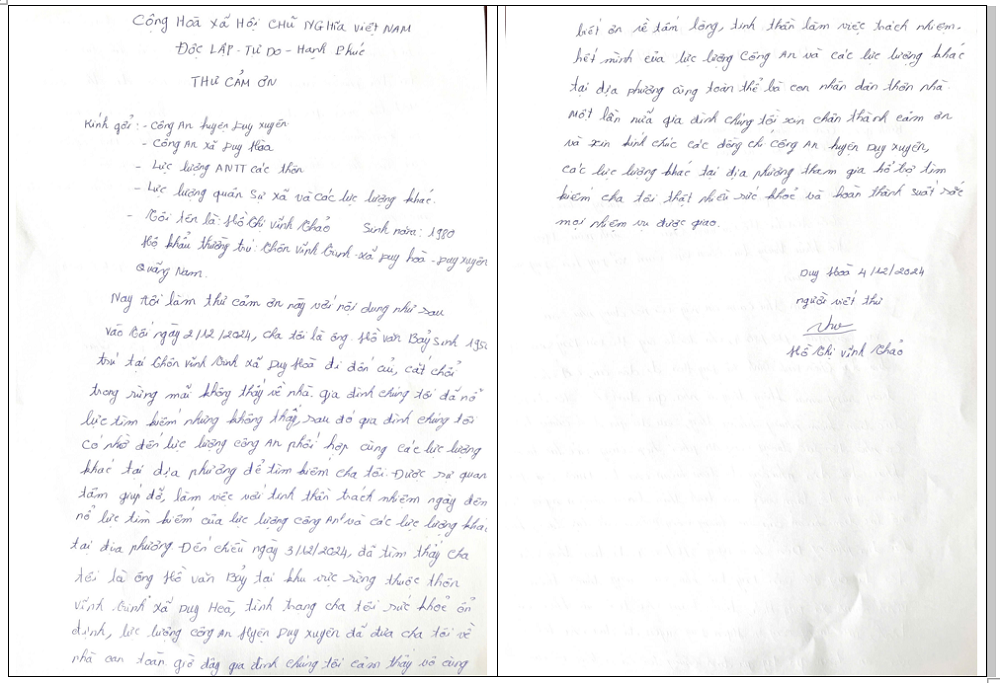 Cộng Hoà Xã Hội Chủ Nghĩa Việt Nam
Độc Lập - Tự Do - Hạnh Phúc
THƯ CẢM ƠN
Kính gởi: - Công An huyện Duy Xuyên
- Công An xã Duy Hòa
- Lực lượng ANTT các thôn
- Lực lượng quân sự xã và các lực lượng khác.
- Tôi tên là: Hồ Thị Vĩnh Thảo Sinh năm: 1980
Hộ khẩu thường trú: Thôn Vĩnh Trinh - xã Duy Hoà - Duy Xuyên
Quảng Nam.
Nay tôi làm thư cảm ơn này với nội dung như sau
Vào tối ngày 2/12/2024, cha tôi là ông Hồ Văn Bảy sinh 195
trú tại thôn Vĩnh Trinh xã Duy Hoà đi đốn củi, cắt chổi
trong rừng mãi không thấy về nhà. Gia đình chúng tôi đã nổ
lực tìm kiếm nhưng không thấy, sau đó gia đình chúng tôi
có nhờ đến lực lượng công An phối hợp cùng các lực lượng
khác tại địa phương để tìm kiếm cha tôi. Được sự quan
tâm giúp đỡ, làm việc với tinh thần trách nhiệm ngày đêm
nổ lực tìm kiếm của lực lượng công An và các lực lượng khác
tại địa phương Đến chiều ngày 3/12/2024, đã tìm thấy cha
tôi là ông Hồ Văn Bảy tại khu vực rừng thuộc thôn
Vĩnh Trinh xã Duy Hoà, tình trạng cha tôi sức khoẻ ổn
định, lực lượng công An Huyện Duy Xuyên đã đưa cha tôi về
nhà an toàn giờ đây gia đình chúng tôi cảm thấy vô cùng
biết ơn về tấm lòng, tinh thần làm việc trách nhiệm.
hết mình của lực lượng Công An và các lực lượng khác
tại địa phương cùng toàn thể bà con nhân dân thôn nhà
Một lần nữa gia đình chúng tôi xin chân thành cảm ơn
và xin kính chúc các đồng chí Công An huyện Duy Xuyên,
các lực lượng khác tại địa phương tham gia hổ trợ tìm
kiếm cha tôi thật nhiều sức khoẻ và hoàn thành suất sắc
mọi nhiệm vụ được giao.
Duy Hoà 4/12/2024
người viết thư
Hồ Thị Vĩnh Thảo